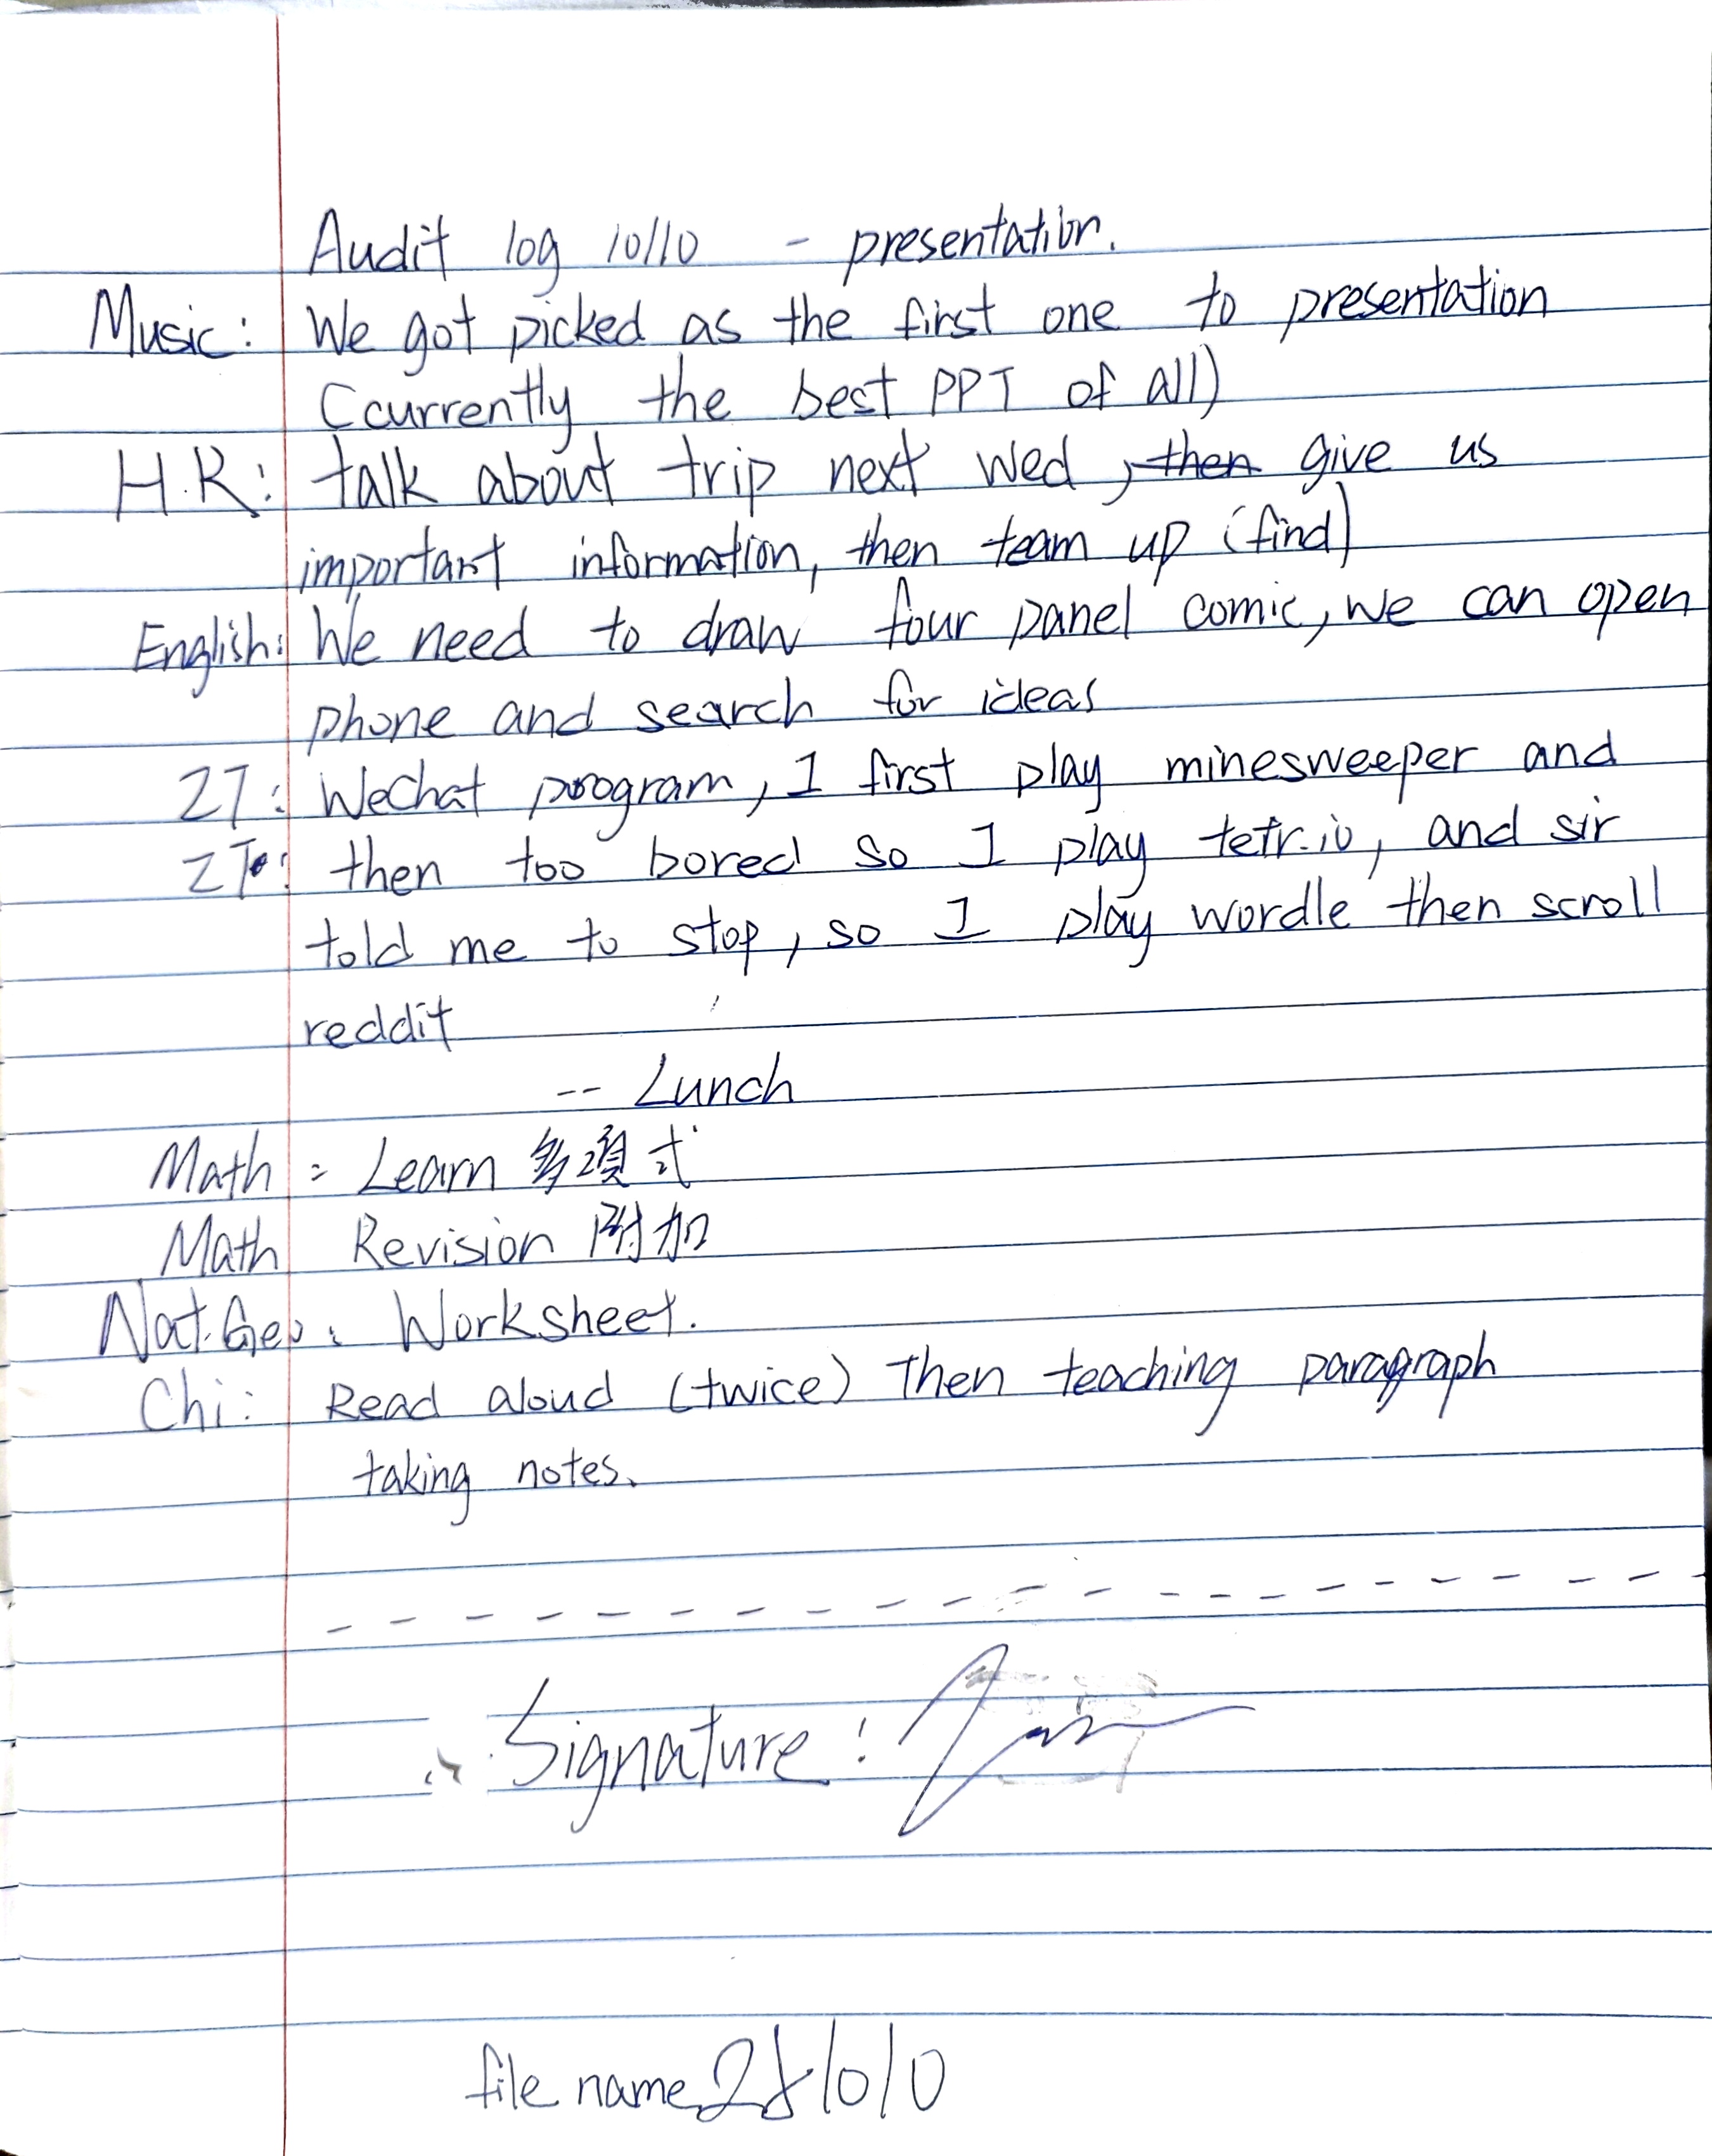 Audit log 10/10 - presentation.
Music: We got picked as the first one to presentation
(currently the best PPT of all)
H.R: talk about trip next wed, then give us
important information, then team up (find)
English: We need to draw four panel comic, we can open
phone and search for ideas
IT: WeChat program, I first play minesweeper and
IT: then too bored so I play tetr.io, and sir
told me to stop, so I play wordle then scroll
reddit
-- Lunch
Math: Learn 多項式
Math Revision 附加
Nat.Geo: Worksheet.
Chi: Read aloud (twice) Then teaching paragraph
taking notes.
Signature:
file name 251010